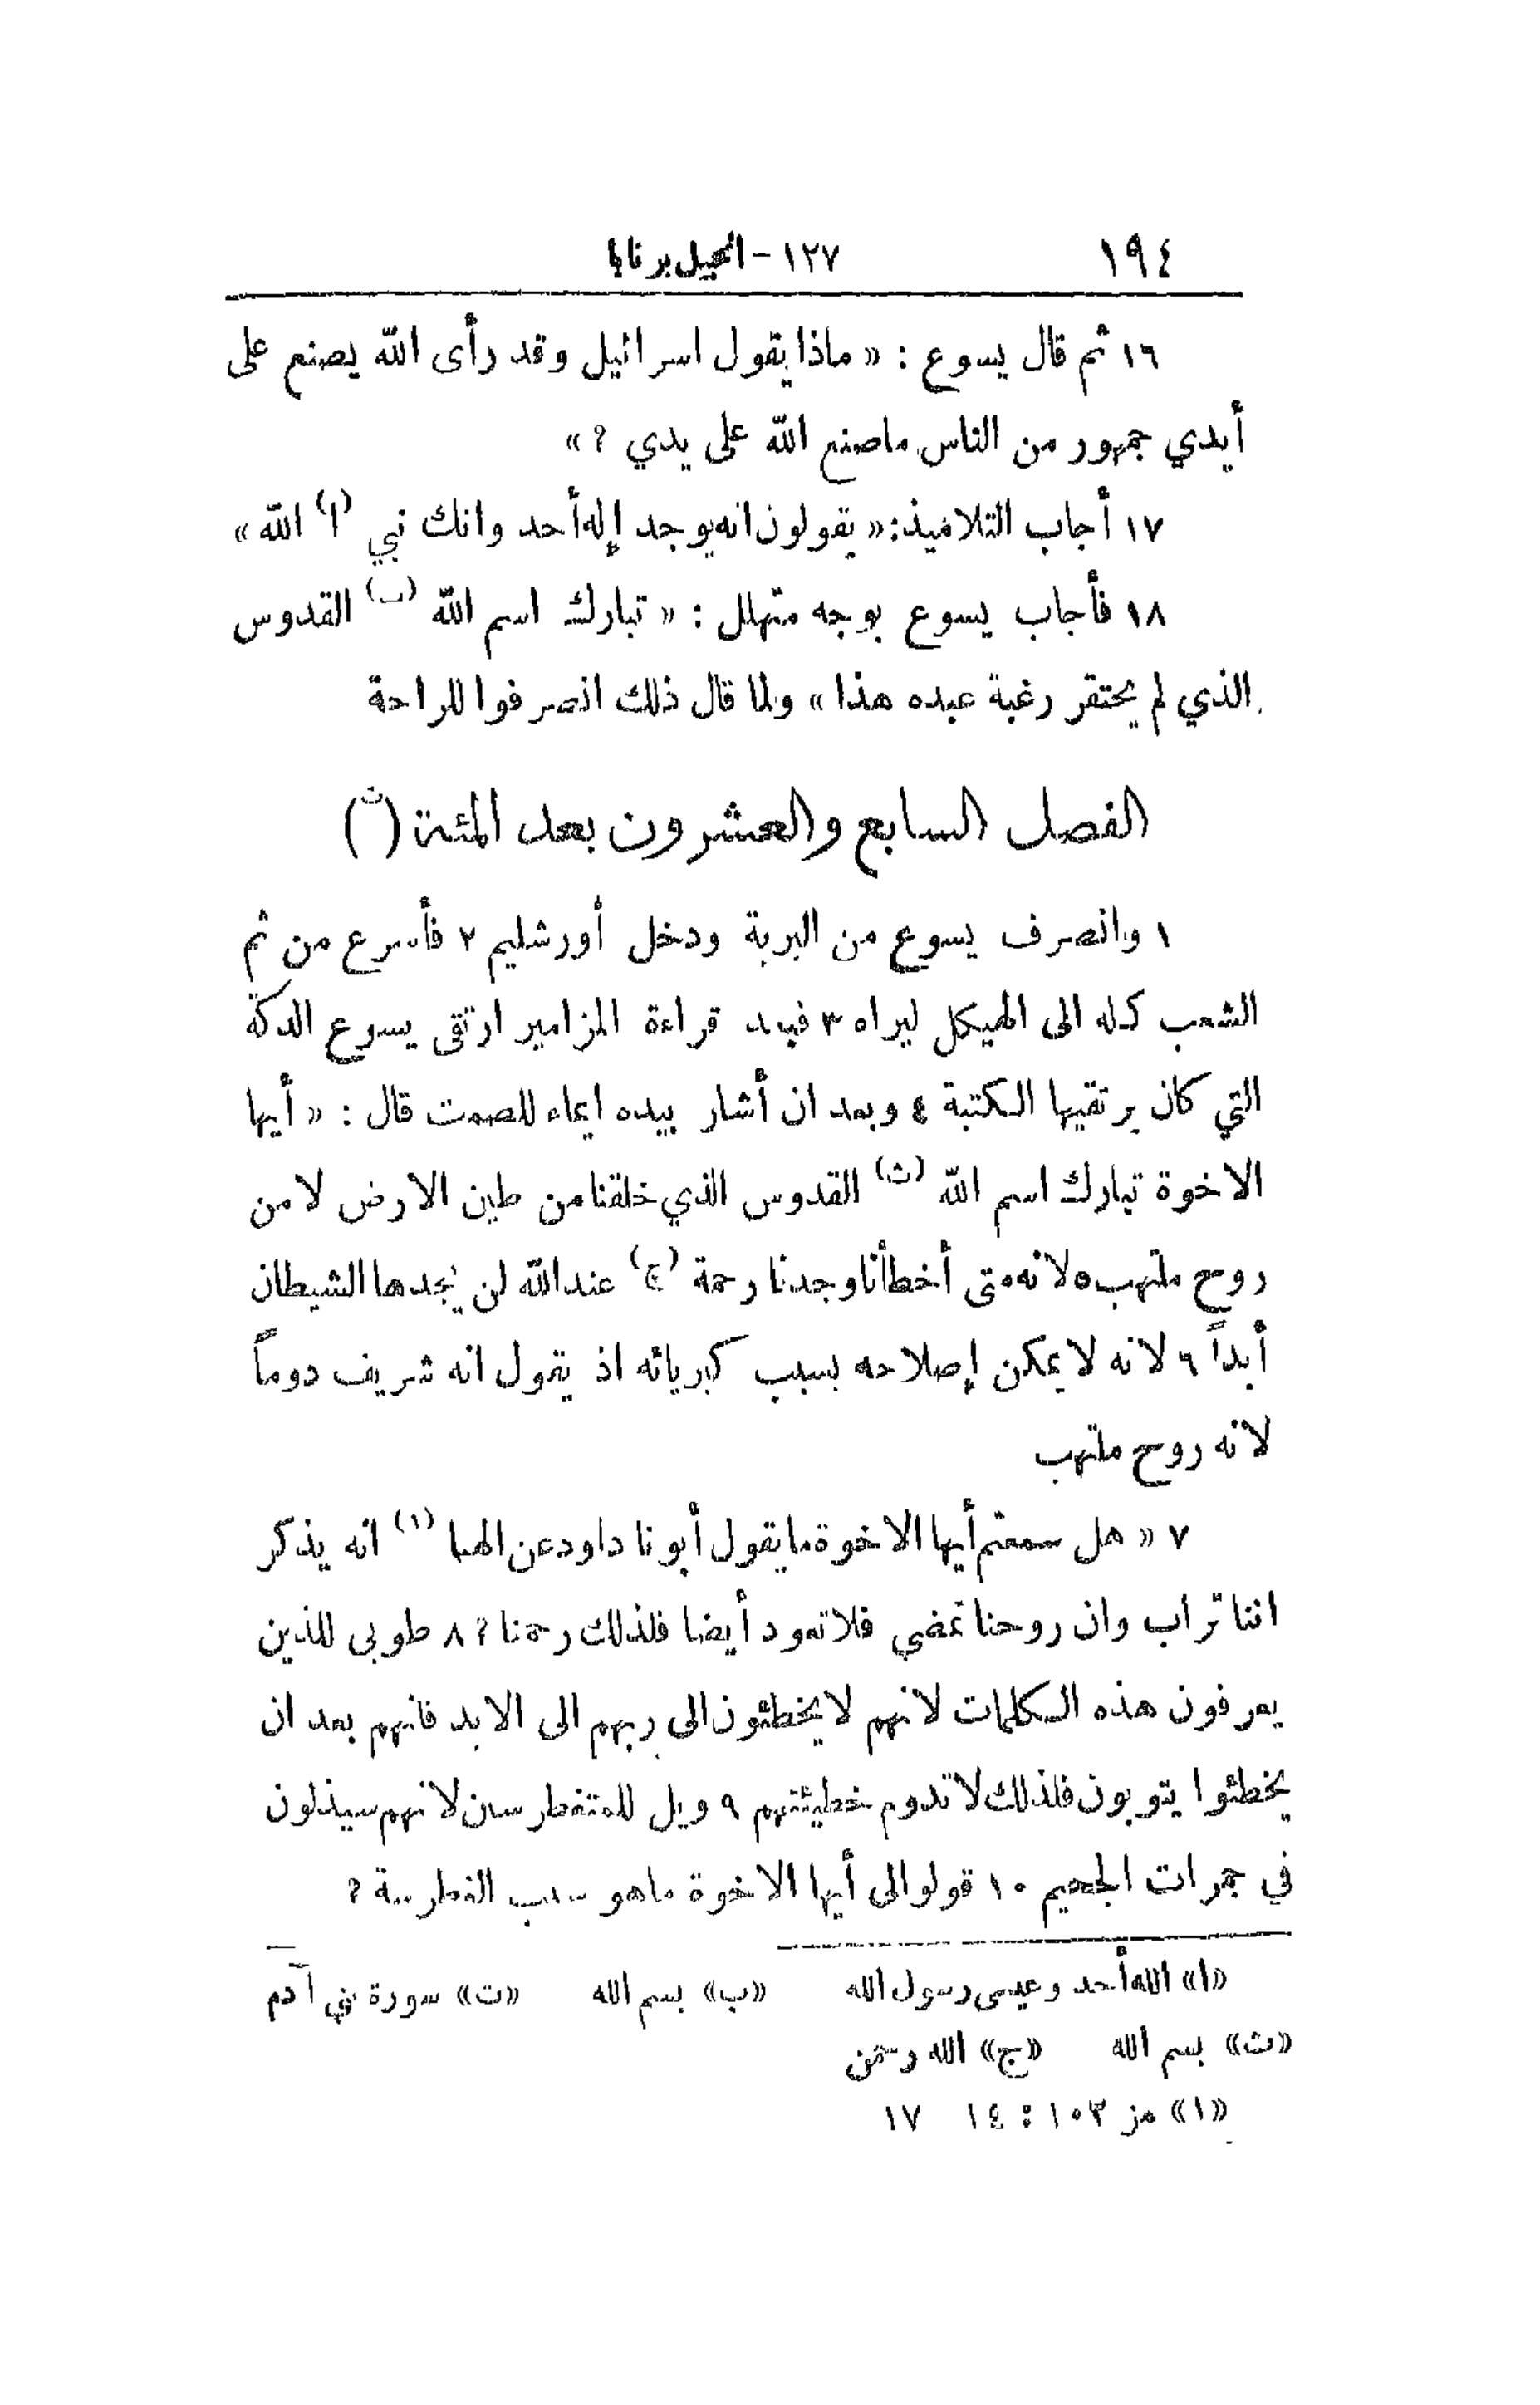 ١٩٤ ١٢٧ - انجيل برنابا
١٦ ثم قال يسوع : « ماذا يقول اسرائيل وقد رأى الله يصنع على
أيدي جمهور من الناس ماصنع الله على يدي ? »
١٧ أجاب التلاميذ: « يقولون انه يوجد إله أحد وانك نبي (ا) الله »
١٨ فأجاب يسوع بوجه متهلل : « تبارك اسم الله (ب) القدوس
الذي لم يحتقر رغبة عبده هذا » ولما قال ذلك انصرفوا للراحة
الفصل السابع والعشرون بعد المئة (ت)
١ وانصرف يسوع من البرية ودخل أورشليم ٢ فأسرع من ثم
الشعب كله الى الهيكل ليراه ٣ فبعد قراءة المزامير ارتقى يسوع الدكة
التي كان يرتقيها الكتبة ٤ وبعد ان أشار بيده ايماء للصمت قال : « أيها
الاخوة تبارك اسم الله (ث) القدوس الذي خلقنا من طين الارض لا من
روح ملتهب ٥ لانه متى أخطأنا وجدنا رحمة (ج) عند الله لن يجدها الشيطان
أبداً ٦ لانه لا يمكن إصلاحه بسبب كبريائه اذ يقول انه شريف دوماً
لانه روح ملتهب
٧ « هل سمعتم أيها الاخوة ما يقول أبونا داود عن الهنا (١) انه يذكر
اننا تراب وان روحنا تمضي فلا تعود أيضا فلذلك رحمنا ? ٨ طوبى للذين
يعرفون هذه الكلمات لانهم لا يخطئون الى ربهم الى الابد فانهم بعد ان
يخطئوا يتوبون فلذلك لا تدوم خطيئتهم ٩ ويل للمتغطرسين لانهم سيذلون
في جمرات الجحيم ١٠ قولوا لى أيها الاخوة ماهو سبب الغطرسة ?
«ا» الله أحد وعيسى رسول الله «ب» بسم الله «ت» سورة بني آدم
«ث» بسم الله «ج» الله رحمن
«١» مز ١٠٣ : ١٤ ١٧